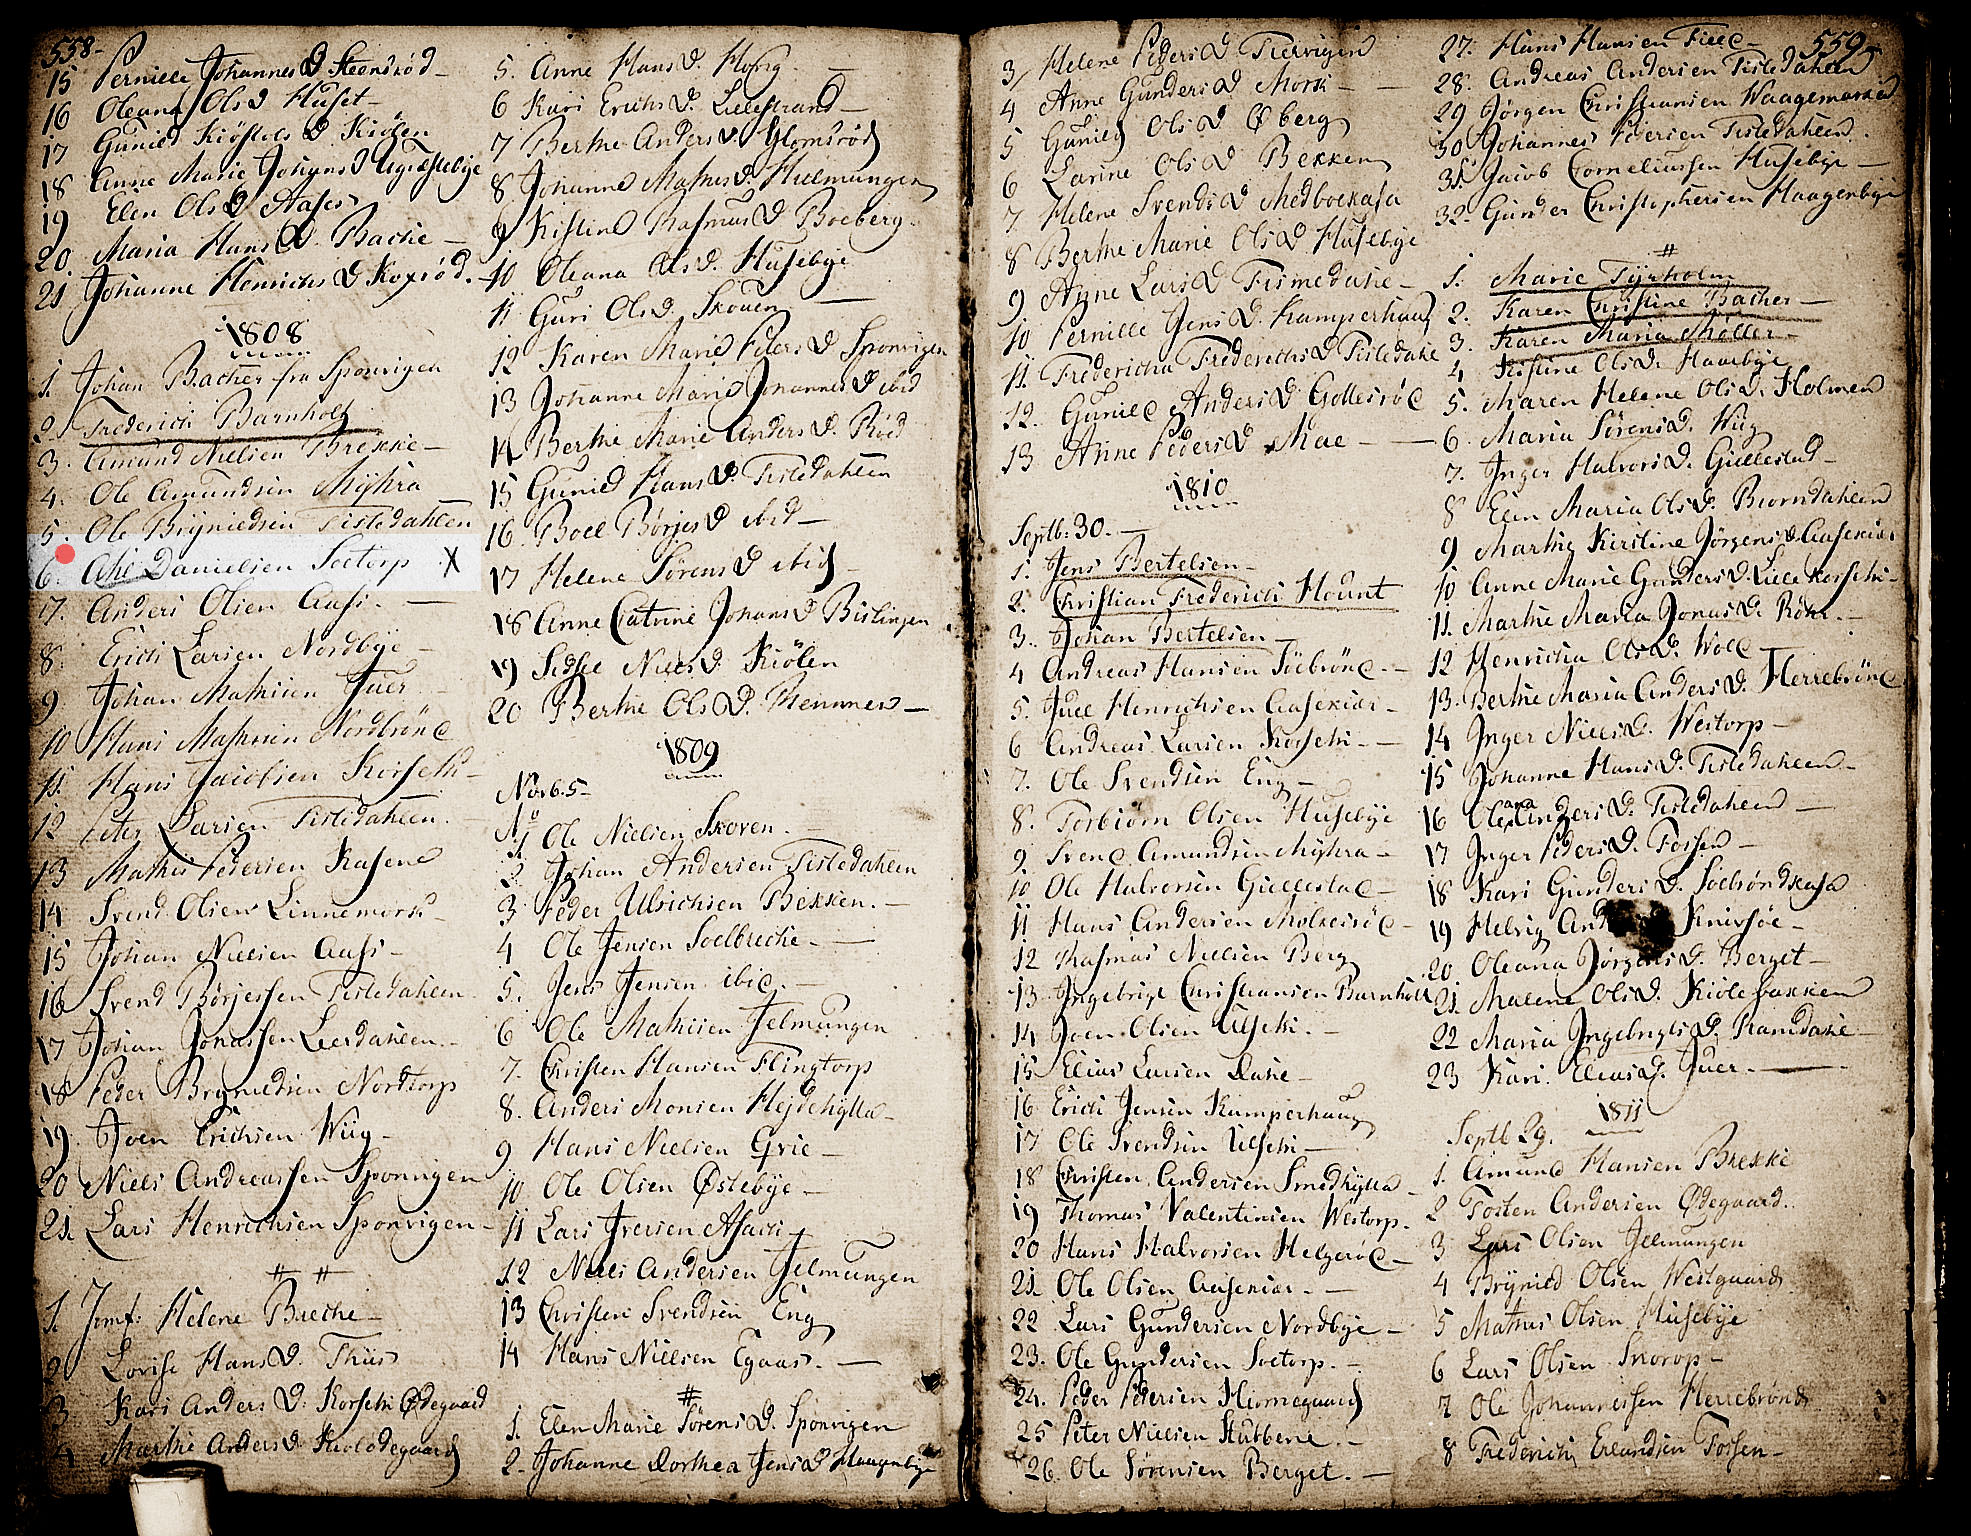 558.
15 Pernille Johannes D Steensrød
16 Oleana Ols D Huset
17 Gunild Kiøstols D Kiølen
18 Anne Marie Johans D
19 Elen Ols D Aases
20. Maria Hans D. Bache
21 Johanne Henrichs D Koxrød.
1808
1. Johan Bacher fra Sponvigen
2. Frederich Barnholt
3. Amund Nielsen Brekke
4. Ole Amundsen Myhra
5. Ole Bryniedsen Tistedahlen
6. Ole Danielsen Soetorp X
7. Anders Olsen Aass.
8. Erich Larsen Nordbye
9 Johan Mathisen Juer
10 Hans Mathisen Nordbrønd
11. Hans Jacobsen Korseth
12 Peter Larsen Tistedahlen.
13 Mathis Pedersen Kasene
14 Svend Olsen Linnemork
15 Johan Nielsen Aass
16 Svend Børjessen Tistedahlen
17 Johan Jonassen Leerdahlen.
18 Peder Bryniedsen Nordtorp
19. Joen Erichsen Wiig
20 Niels Andreassen Sponvigen
21. Lars Henrichsen Sponvigen
# #
1. Jmf: Helene Breche
2 Lovise Hans D. Thiis
3 Kari Anders D. Korseth Ødegaard
4 Marthe Anders D
5. Anne Hans D. Houg.
6 Kari Erichs D. Lillestrand
7 Berthe Anders D. Glomsrød
8 Johanne Mathis D. Hielmungen
9 Kistine Rasmus D Boeberg.
10 Oleana Ols D. Husebye
11 Guri Ols D. Skouen
12 Karen Marie Peders D Sponvigen
13 Johanne Marie Johannes D ibid
14 Berthe Marie Anders D. Röed
15 Gunild Hans D. Tistedahlen
16. Boel Børjes D ibid
17 Helene Sørens D ibid
18 Anne Catrine Johans D Bislingen
19 Sidsel Niels D. Kiölen
20 Berthe Ols D. Remmen
1809
Novb. 5
No 1 Ole Nielsen Skoven.
2 Johan Andersen Tistedahlen
3 Peder Ulrichsen Bekken.
4 Ole Jensen Soelbreche
5. Jens Jensen ibid.
6 Ole Mathisen Jelmungen
7. Christen Hansen Flingtorp
8. Anders Monsen Hejdehytta
9 Hans Nielsen Grie
10 Ole Olsen Østebye
11 Lars Iversen Asach
12 Niels Andersen Jelmungen
13 Christen Svendsen Eng
14 Hans Nielsen Egaas.
#
1. Elen Marie Sørens D. Sponvigen
2. Johanne Dorthea Jens D Haagenbye
3 Helene Peders D. Tielvigen
4 Anne Gunders D Mork
5 Gunild Ols D Øberg
6 Larine Ols D Bekken
7 Helene Svends D Medboekasa
8 Berthe Marie Ols D Husebye
9 Anne Lars D Fismedahe
10 Pernille Jens D. Kamperhaug
11. Fredericha Frederichs D Tistedahl
12. Gunild Anders D Gollesrød
13 Anne Peders D Mae
1810
Septb: 30.
1. Jens Bertelsen
2. Christian Frederich Hount
3. Johan Bertelsen
4 Andreas Hansen Söebrönd.
5. Juel Henrichsen Aasekiær
6 Andreas Larsen Korseth.
7. Ole Svendsen Eng
8. Torbiörn Olsen Husebye
9 Svend Amundsen Myhra
10 Ole Halvorsen Gullestad
11 Hans Andersen Molkesrød
12 Rasmus Nielsen Berg
13 Ingebrigt Christiansen Barnholt
14 Joen Olsen Ulseth.
15 Elias Larsen Dahe
16 Erich Jensen Kamperhaug
17 Ole Svendsen Ulseth
18 Christen Andersen Smedhytta
19 Thomas Valentinsen Westorp.
20 Hans Halvorsen Helgerød
21. Ole Olsen Aasekiær.
22 Lars Gundersen Nordbye
23. Ole Gundersen Soetorp.
24. Peder Pedersen Hiornegaard
25 Peter Nielsen Stubbene.
26. Ole Sørensen Berget.
559.
27. Hans Hansen Field
28. Andreas Andersen Tistedahlen
29 Jørgen Christiansen Waagemarken
30 Johannes Pedersen Tistedahlen.
31. Jacob Corneliussen Husebye
32. Gunder Christophersen Haagenbye
#
1. Marie Tyrholm
2. Karen Christine Bacher
3. Karen Maria Møller
4 Kistine Ols D. Haabye
5. Maren Helene Ols D. Holmen
6. Maria Sørens D. Wiig
7. Inger Halvors D. Gullestad
8 Elen Maria Ols D. Biorndahlen
9 Marthe Kirstine Jørgens D. Aasekiær
10 Anne Marie Gunders D. Lille Korseth
11. Marthe Maria Jonas D. Röhr.
12 Henricha Ols D. Wold
13. Berthe Maria Anders D. Herrebrönd
14 Inger Niels D. Westorp
15 Johanne Hans D. Tistedahlen
16 Oleana Anders D. Tistedahlen
17 Inger Peders D. Fossen
18 Kari Gunders D. Söebröndkasa
19 Helvig And Knivsöe
20 Oleana Jörgens D. Berget
21. Malene Ols D. Kiölebakken
22 Maria Ingebrigts D. Ramdahe
23 Kari Elias D. Juer.
1811
Septb 29.
1. Amund Hansen Brekke
2 Tosten Andersen Ødegaard.
3 Lars Olsen Jelmungen
4 Brynild Olsen Westgaard
5 Mathis Olsen Husebye
6 Lars Olsen Snorop
7 Ole Johannessen Herrebrönd
8 Frederich Erlandsen Fossen